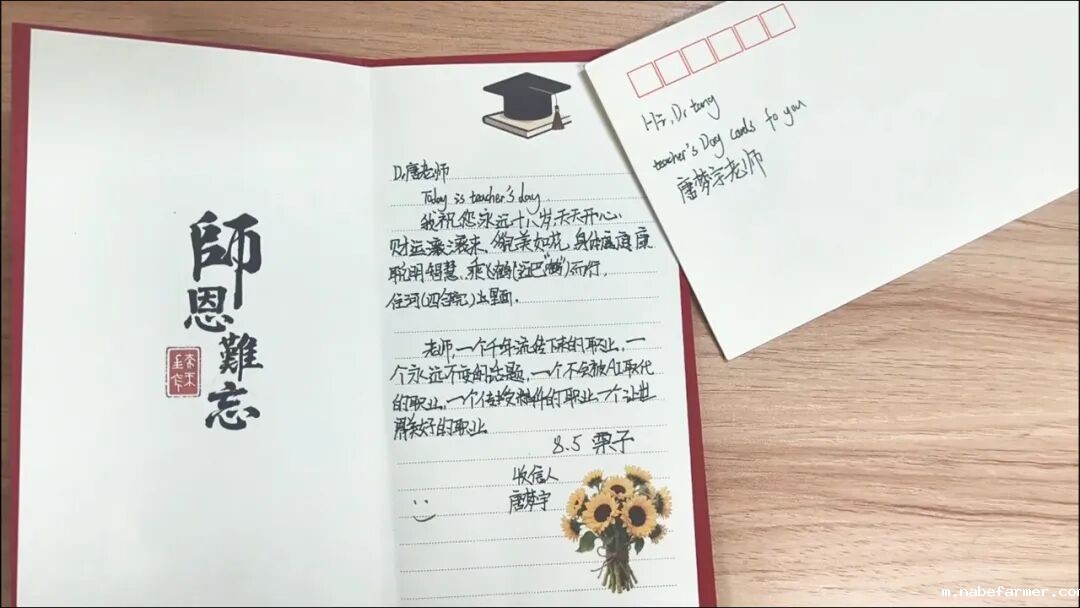 師恩難忘
Dr唐老师
Today is teacher's day.
我祝您永远十八岁,天天开心.
财运滚滚来,貌美如花,身体健康
聪明智慧,乘飞鹤(迈巴"鹤")而行,
住河(四合院)出里面.
老师,一个千年流传下来的职业,一
个永远不变的话题,一个不会被AI取代
的职业,一个传授精神的职业,一个让世
界美好的职业.
8.5 栗子
收信人
唐梦宇
Hi, Dr tang
teacher's Day cards to you
唐梦宗老师
m.nabefarmer.com